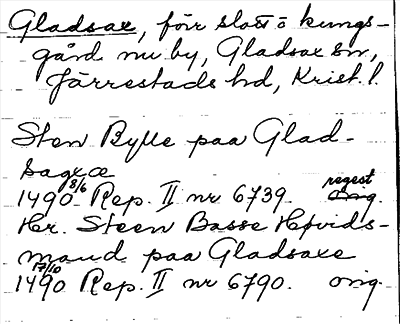 Gladsax, förr slott o kungs-
gård nu by, Gladsax sn,
Järrestads hd, Krist. l.
Sten Bylle paa Glad-
saxæ
1490 8/6 Rep. II nr 6739. regest orig.
Hr. Steen Basse Høvids-
mand paa Gladsaxe
1490 17/10 Rep. II nr 6790. orig.